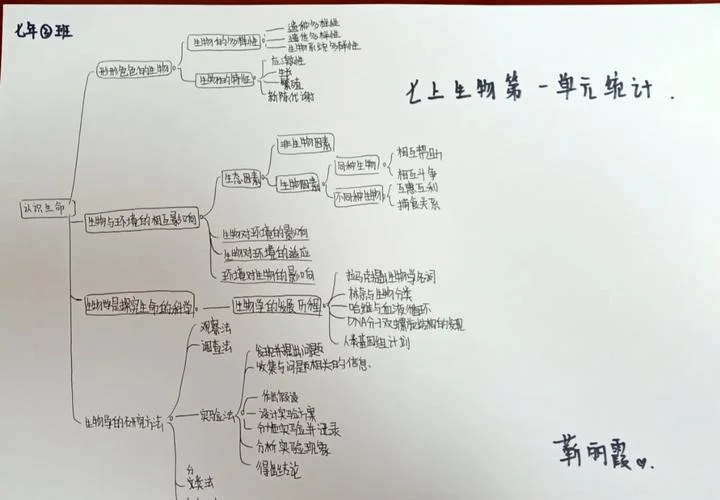 七年②班
七上生物第一单元统计.
认识生命
形形色色的生物
生物的多样性
遗传多样性
生物系统多样性
生物的特征
应激性
生长
繁殖
新陈代谢
生物与环境的相互影响
生态因素
非生物因素
生物因素
同种生物
相互帮助
相互斗争
不同种生物
互惠互利
捕食关系
生物对环境的影响
生物对环境的适应
环境对生物的影响
生物学是探究生命的科学
生物学的发展历程
拉马克提出生物学名词
林奈与生物分类
哈维与血液循环
DNA分子双螺旋结构的发现
人类基因组计划
生物学的研究方法
观察法
调查法
实验法
发现并提出问题
收集与问题相关的信息
作出假设
设计实验方案
实验并记录
分析实验现象
得出结论
分
类法
靳丽霞